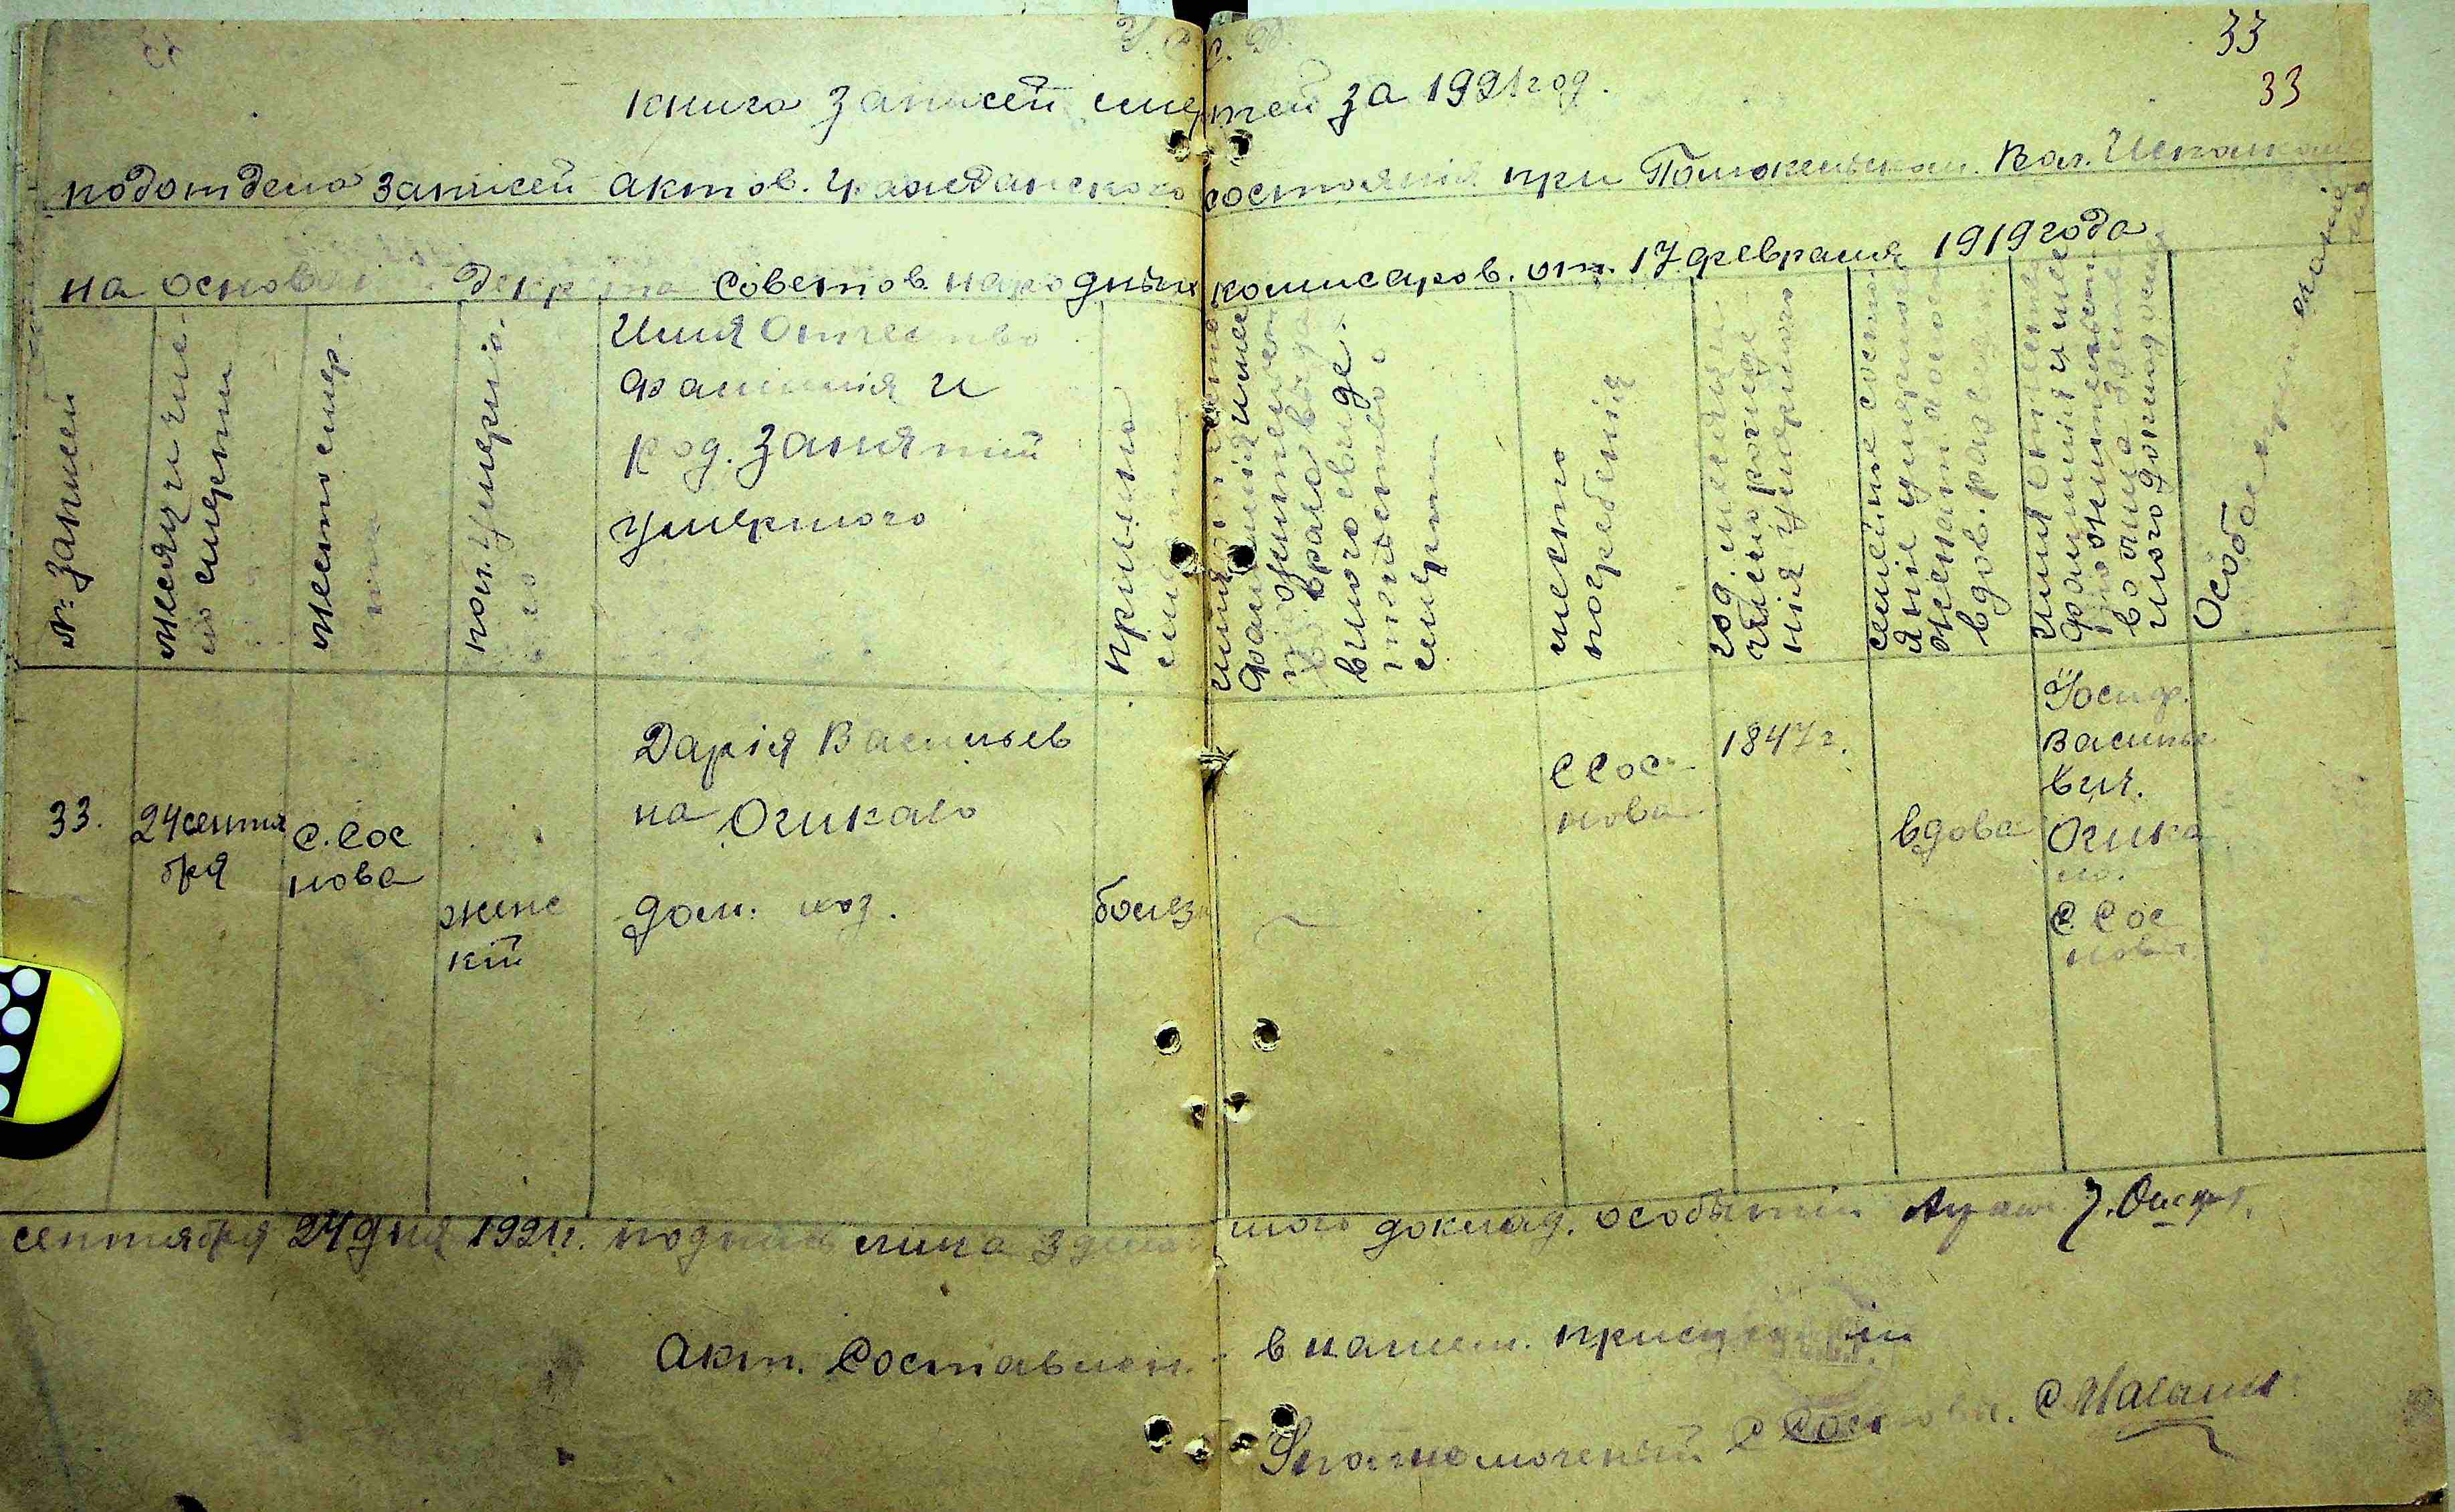 У.С.С.Р.
33
33
книга записей смертей за 1921 год.
подотдела записей актов. гражданского состоянія при Вол. Исполком
на основан декрета советов. народных комисаров. от. 17 февраля 1919 года
№ записей
месяц и чис
ло смерти
место смер.
ти
пол. умерша.
го
Имя Отчество
фамилія и
род. занятій
умершого
причина
смерти
место
погребенія
год. месяц и
число рожде
нія умершого
семейное состоя
яніе умершого
женат. холост
вдов. развед
имя отчество
фамилія и мес
то жительст
во лица
Особые примечанія
33.
24 сентя
бря
с. Сос
нова
женс
кій
Дарія Васильев
на Огикало
дом. хоз.
болезн
С Сос
нова
1847 г.
вдова
Йосиф.
Василье
вич.
Огика
ло.
С. Сос
нова
сентября 24 дня 1921 г. подпись лица зделав шого доклад. о событіи
Акт. Составлен. в нашем. присудствіи
Уполномоченый С Соснова. С.